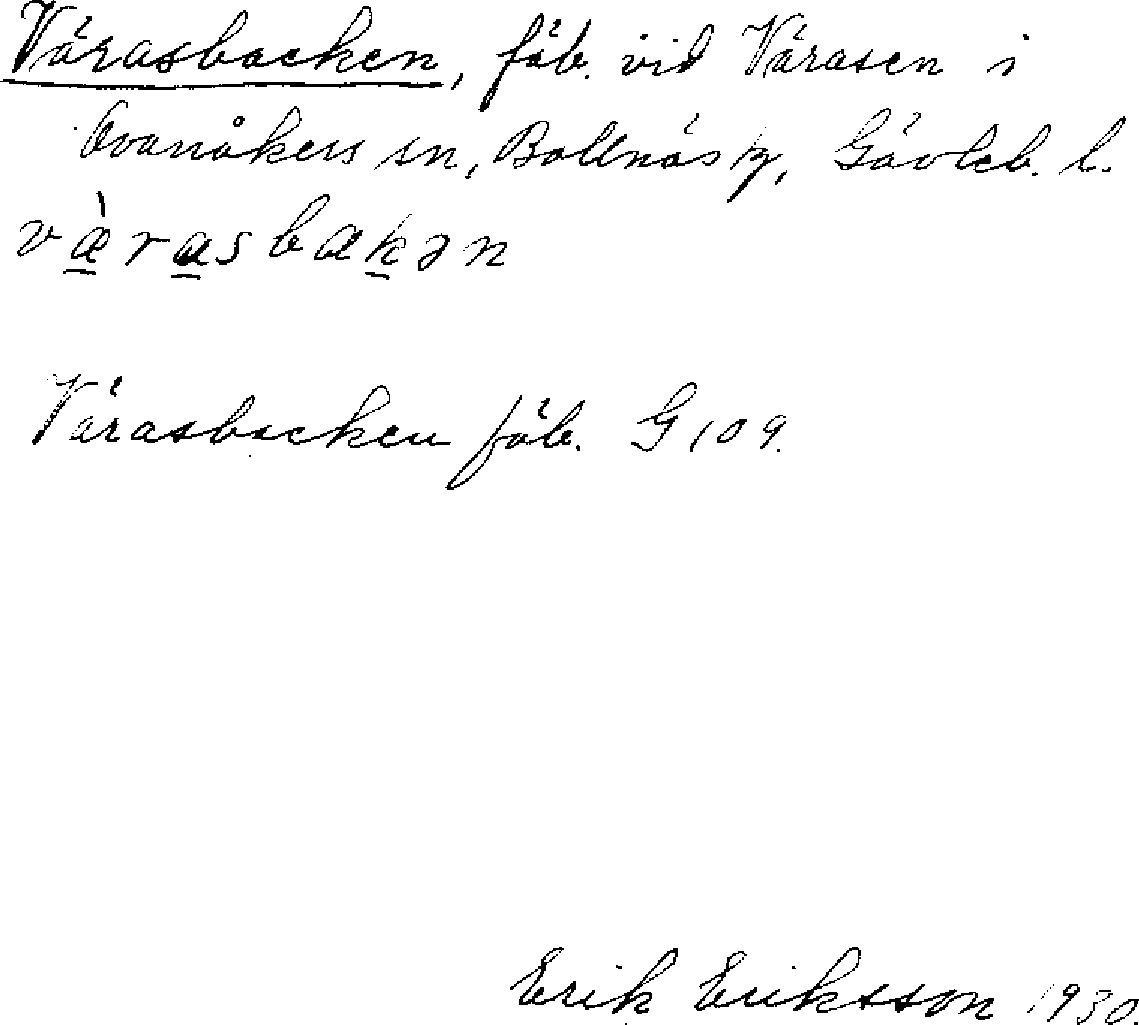 Värasbacken, fäb. vid Värasen i
Ovanåkers sn, Bollnäs tg, Gävleb. l.
væ̀rasbakən
Värasbacken fäb. G 109.
Erik Eriksson 1930.